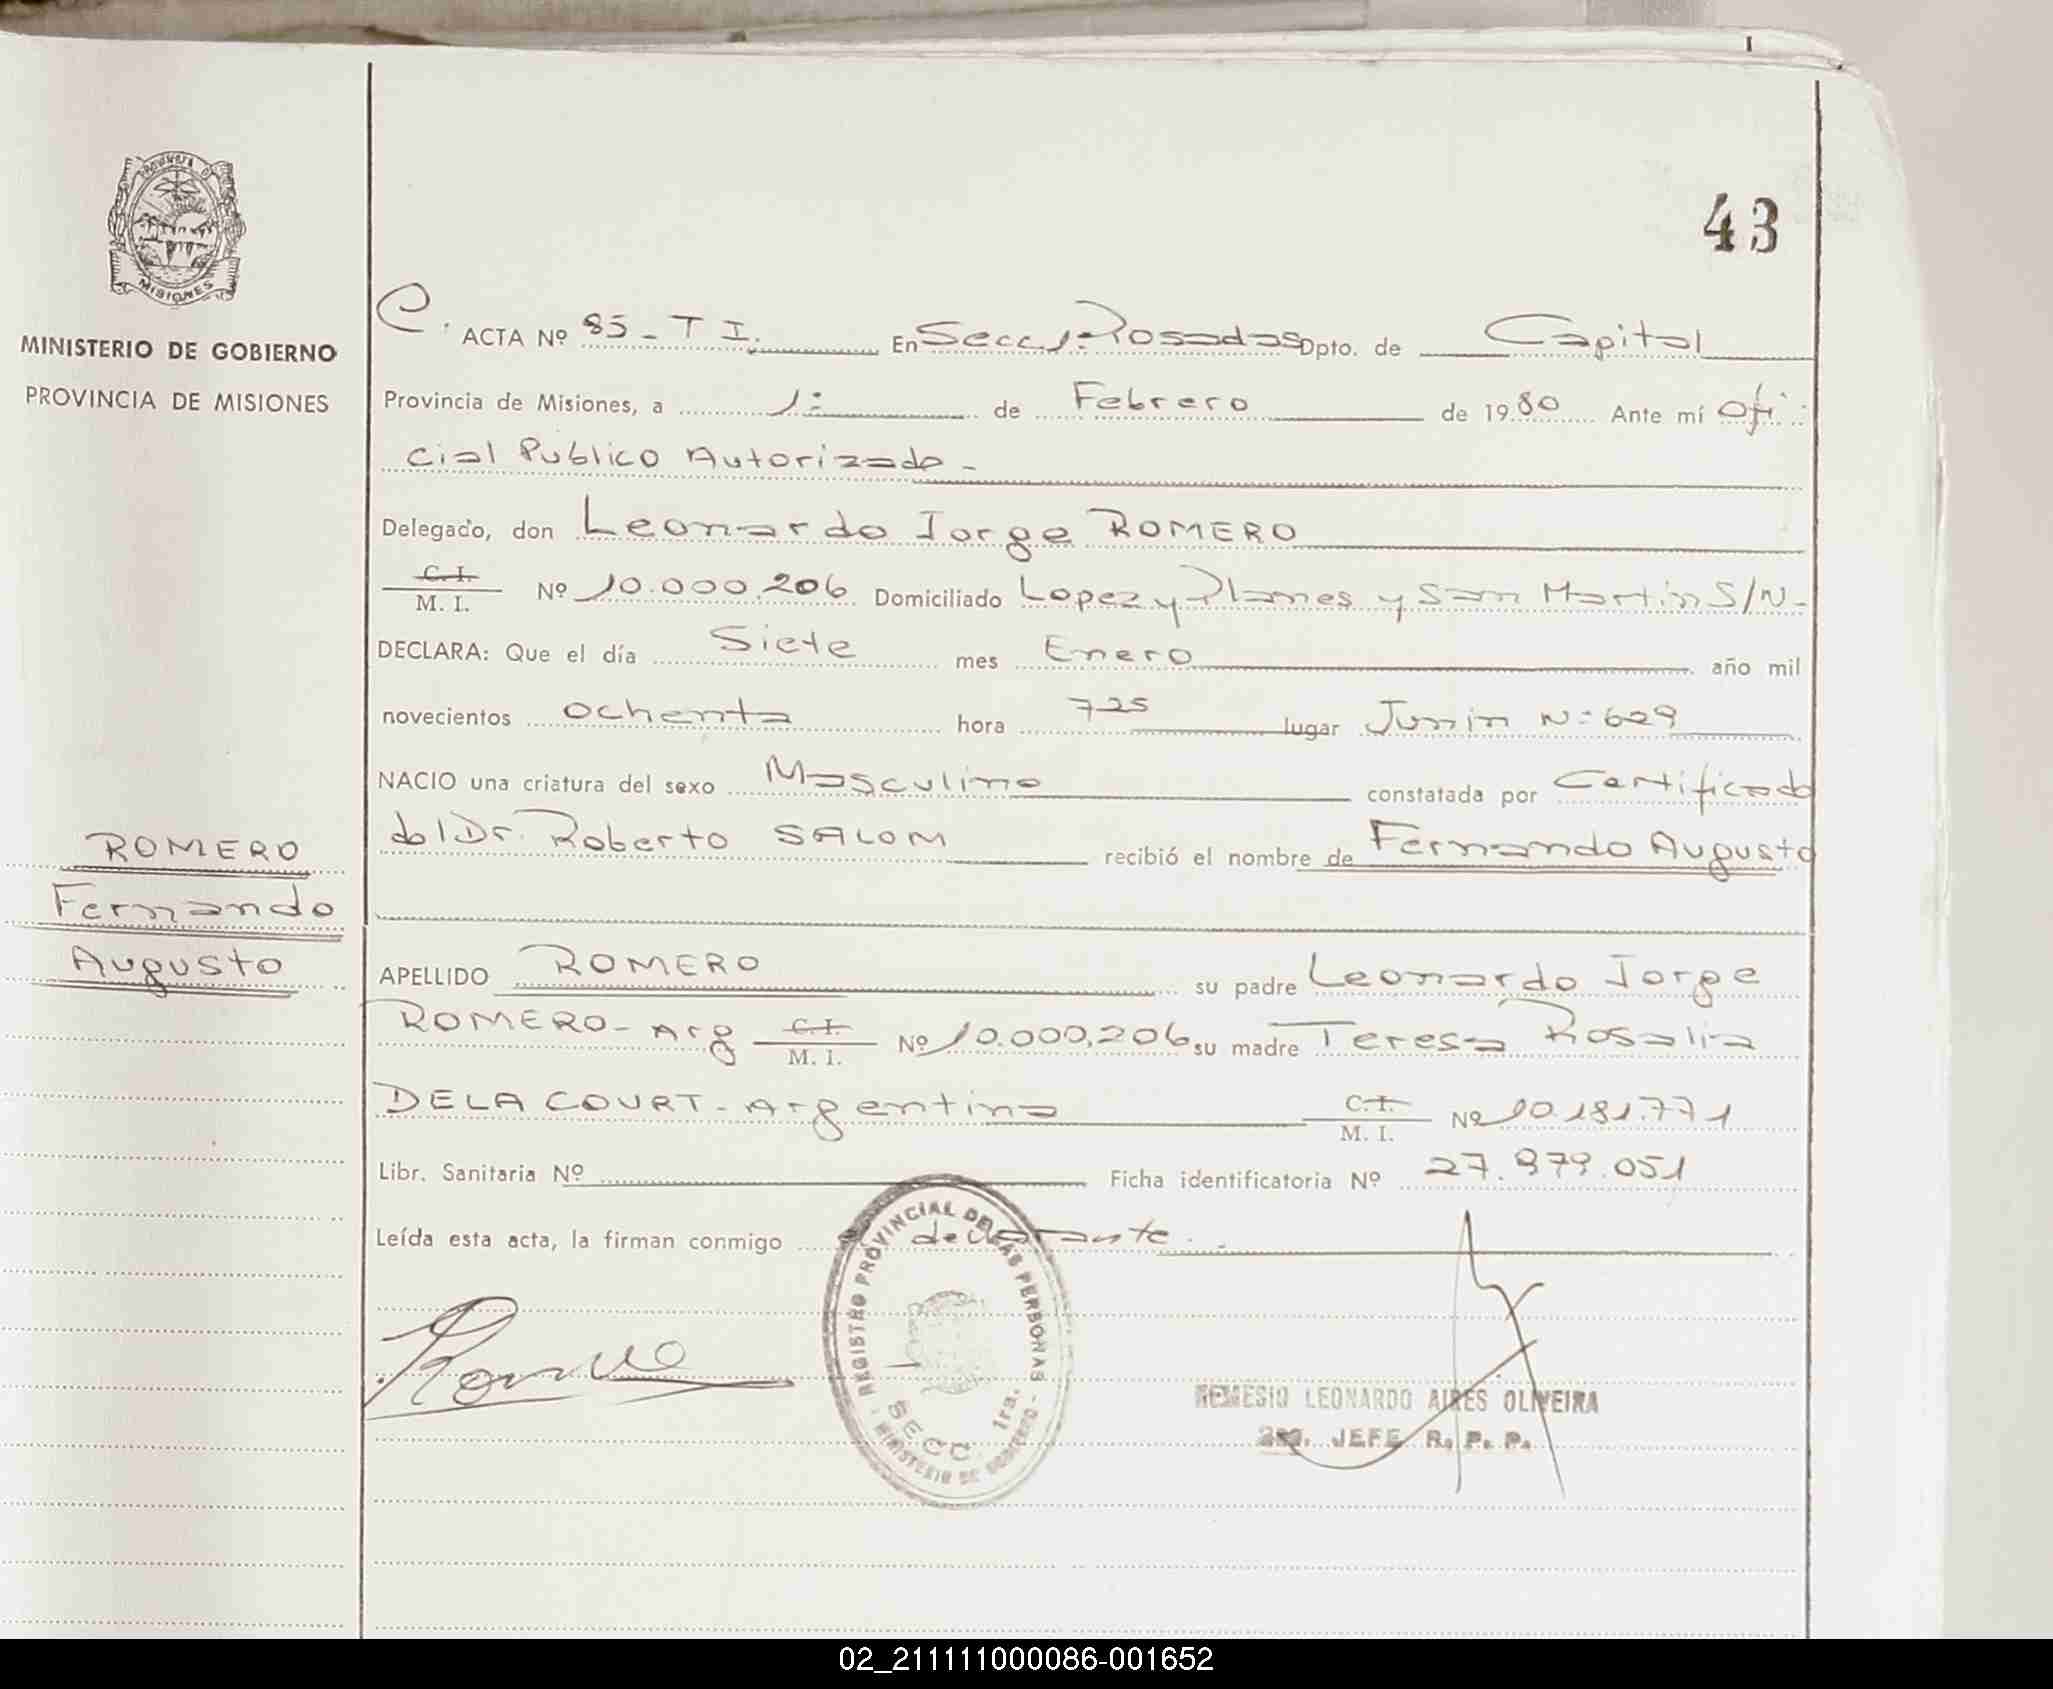 43
MINISTERIO DE GOBIERNO
PROVINCIA DE MISIONES
ACTA Nº 85 - T I. En Secc 1: Posadas Dpto. de Capital
Provincia de Misiones, a 1: de Febrero de 1980 Ante mí Ofi
cial Publico Autorizado -
Delegado, don Leonardo Jorge ROMERO
C. I.
M. I. Nº 10.000.206 Domiciliado Lopez y Planes y San Martin S/N-
DECLARA: Que el día Siete mes Enero año mil
novecientos ochenta hora 725 lugar Junin N: 629
NACIO una criatura del sexo Masculino constatada por Certificado
del Dr. Roberto SALOM recibió el nombre de Fernando Augusto
ROMERO
Fernando
Augusto
APELLIDO ROMERO su padre Leonardo Jorge
ROMERO - Arg C. I. M. I. Nº 10.000.206 su madre Teresa Rosalia
DELACOURT - Argentina C. I. M. I. Nº 10.181.771
Libr. Sanitaria Nº Ficha identificatoria Nº 27.979.051
Leída esta acta, la firman conmigo declarante.
REGISTRO PROVINCIAL DE LAS PERSONAS
SECC. 1ra.
MINISTERIO DE GOBIERNO
REMESIO LEONARDO AIRES OLIVEIRA
JEFE R. P. P.
02_211111000086-001652